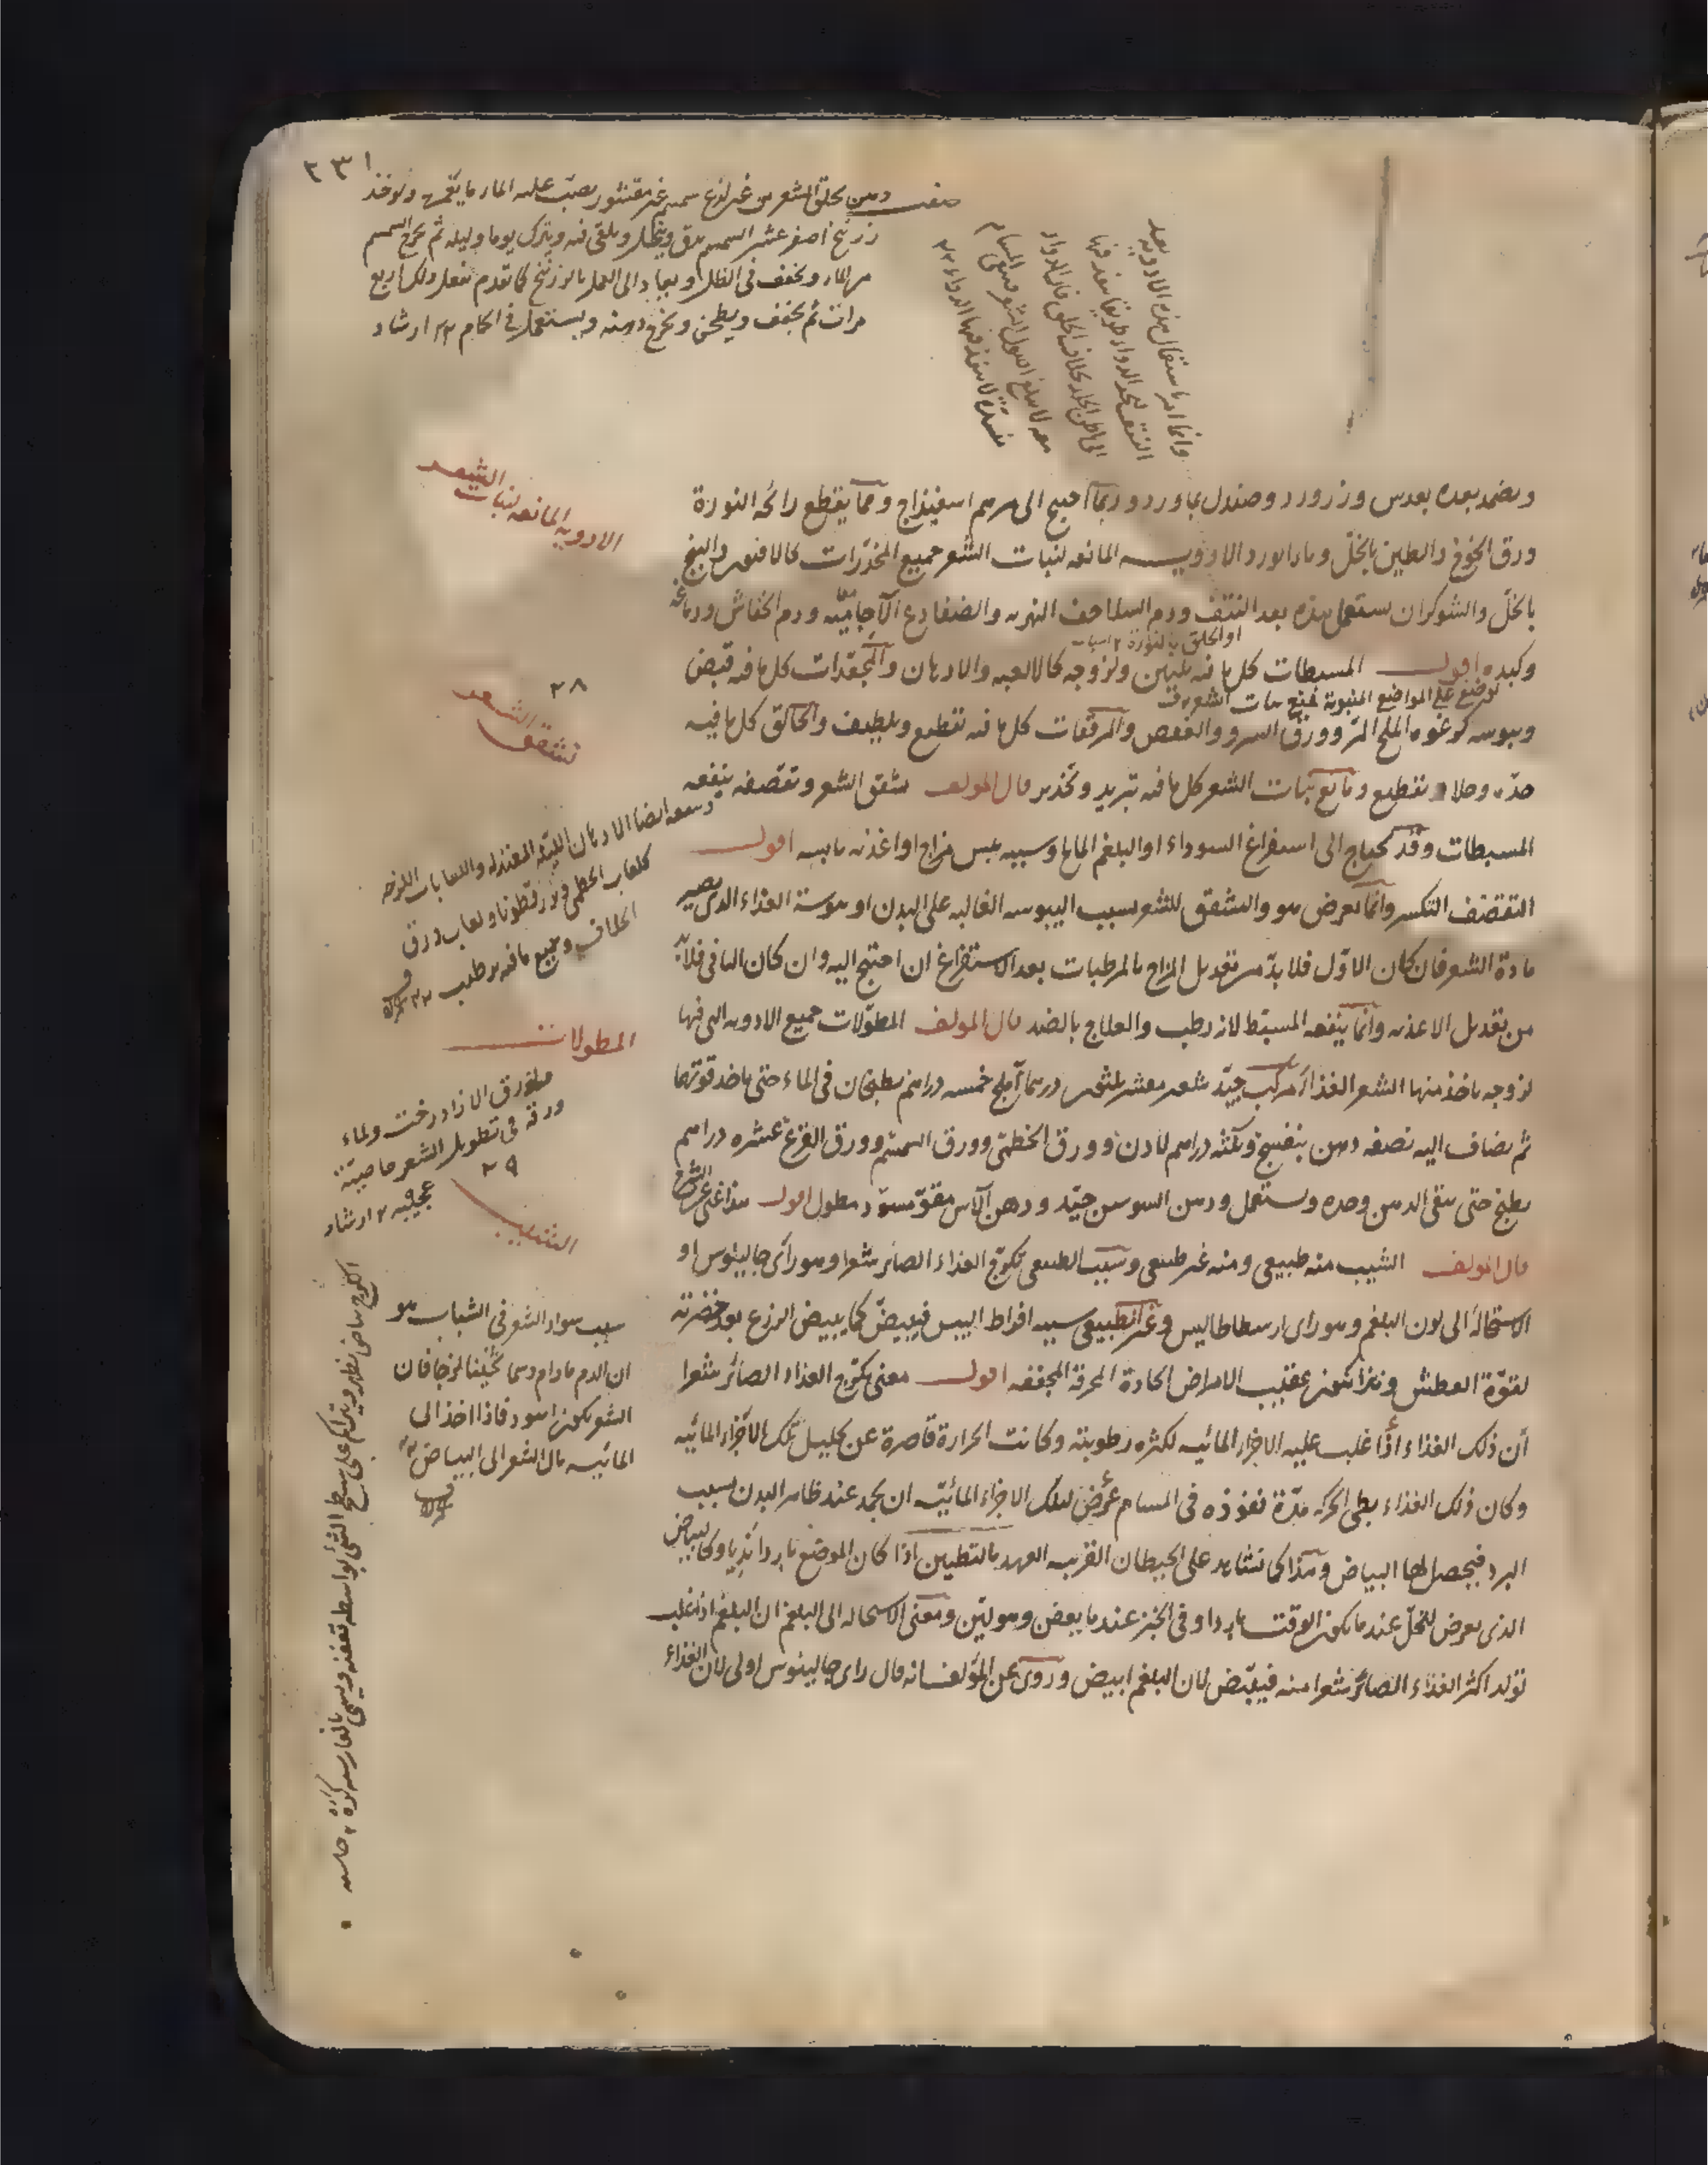 ٢٣١
صفة دهن يحلق الشعر من غير لذع سمسم غير مقشور يصب عليه الماء ما يغمره ويوخذ
زرنيخ اصفر عشر السمسم يدق وينخل ويلقى فيه ويترك يوما وليلة ثم يخرج السمسم
من الماء ويجفف في الظل ويعاد الى العمل بالزرنيخ كما تقدم يفعل ذلك اربع
مرات ثم يجفف ويطحن ويخرج دهنه ويستعمل في الحمام ١٢ ارشاد
وانما امر باستعمال هذه الادوية بعد
النتف ليجد الدواء طريقا ينفذ فيها
الى باطن الجلد بخلاف الحلق فان الدواء
معه لا يبلغ اصول الشعر فيبقى المسام
منسدة لا ينفذ فيها الدواء ١٢
ويضمد بعده بعدس وزرورد وصندل بماورد وربما احتيج الى مرهم اسفيذاج ومما يقطع رائحة النورة
ورق الخوخ والطين بالخل وماء الورد الادوية المانعة لنبات الشعر جميع المخدرات كالافيون والبنج
بالخل والشوكران يستعمل هذه بعد النتف ودم السلاحف النهرية والضفادع الآجامية ودم الخفاش ودماغه
او الحلق بالنورة
وكبده اقول المسبطات كل ما فيه تليين ولزوجة كالالعبة والادهان والمجعدات كل ما فيه قبض
توضع على المواضع المنتوفة فتمنع نبات الشعر
ويبوسة كرغوة الملح المر وورق السرو والعفص والمرققات كل ما فيه تقطيع وتلطيف والحالق كل ما فيه
حدة وجلاء وتقطيع ومانع نبات الشعر كل ما فيه تبريد وتخدير قال المولف تشقق الشعر وتقصفه ينفعه
المسبطات وقد يحتاج الى استفراغ السوداء او البلغم المالح وسببه يبس مزاج او اغذية يابسة اقول
التقصف التكسر وانما يعرض هو والتشقق للشعر بسبب اليبوسة الغالبة على البدن او يبوسة الغذاء الذي يصير
مادة الشعر فان كان الاول فلا بد من تعديل المزاج بالمرطبات بعد الاستفراغ ان احتيج اليه وان كان الثاني فلا بد
من تعديل الاغذية وانما ينفعه المسبط لانه رطب والعلاج بالضد قال المولف المطولات جميع الادوية التي فيها
لزوجة ياخذ منها الشعر الغذاء مركب جيد شعير مقشر ثلثون درهما آملج خمسة دراهم يطبخان في الماء حتى ياخذ قوتهما
ثم يضاف اليه نصفه دهن بنفسج وثلثة دراهم لادن وورق الخطمي وورق السمسم وورق القرع عشرة دراهم
يطبخ حتى يبقى الدهن وحده ويستعمل ودهن السوسن جيد ودهن الآس مقو مسود مطول اقول هذا غني عن الشرح
قال المولف الشيب منه طبيعي ومنه غير طبيعي وسبب الطبيعي تكرج الغذاء الصائر شعرا وهو رأى جالينوس او
الاستحالة الى لون البلغم وهو راى ارسطاطاليس وغير الطبيعي سببه افراط اليبس فيبيض كما يبيض الزرع بعد خضرته
لقوة العطش وهذا يكون عقيب الامراض الحادة المحرقة المجففة اقول معنى تكرج الغذاء الصائر شعرا
ان ذلك الغذاء اذا غلب عليه الاجزاء المائية لكثرة رطوبته وكانت الحرارة قاصرة عن تحليل تلك الاجزاء المائية
وكان ذلك الغذاء بطئ الحركة مدة نفوذه في المسام عرض لتلك الاجزاء المائية ان تجمد عند ظاهر البدن بسبب
البرد فيحصل لها البياض وهذا كما نشاهد على الحيطان القريبة العهد بالتطيين اذا كان الموضع باردا نديا وكالبياض
الذي يعرض للخل عند ما يكون الوقت باردا وفي الخبز عند ما يعفن وهو لين ومعنى الاستحالة الى البلغم ان البلغم اذا غلب
تولد اكثر الغذاء الصائر شعرا منه فيبيض لان البلغم ابيض وروى عن المؤلف انه قال راى جالينوس اولى لان الغذاء
الادوية المانعة لنبات الشعر
٢٨
تشقق الشعر
وينفعه ايضا الادهان اللينة المعتدلة واللعابات اللزجة
كلعاب الخطمي وبزرقطونا ولعاب ورق
الخلاف وجميع ما فيه ترطيب ١٢
المطولات
ورق الازاددرخت ولماء
ورقه في تطويل الشعر خاصية
عجيبة ١٢ ارشاد
٢٩
الشيب
سبب سواد الشعر في الشباب هو
ان الدم مادام دسما ثخينا لزجا فان
الشعر يكون اسود فاذا اخذ الى
المائية مال الشعر الى البياض ١٢
التكرج بياض يظهر ويتراكم على سطح الشئ بواسطة تعفنه ويسمى بالفارسية